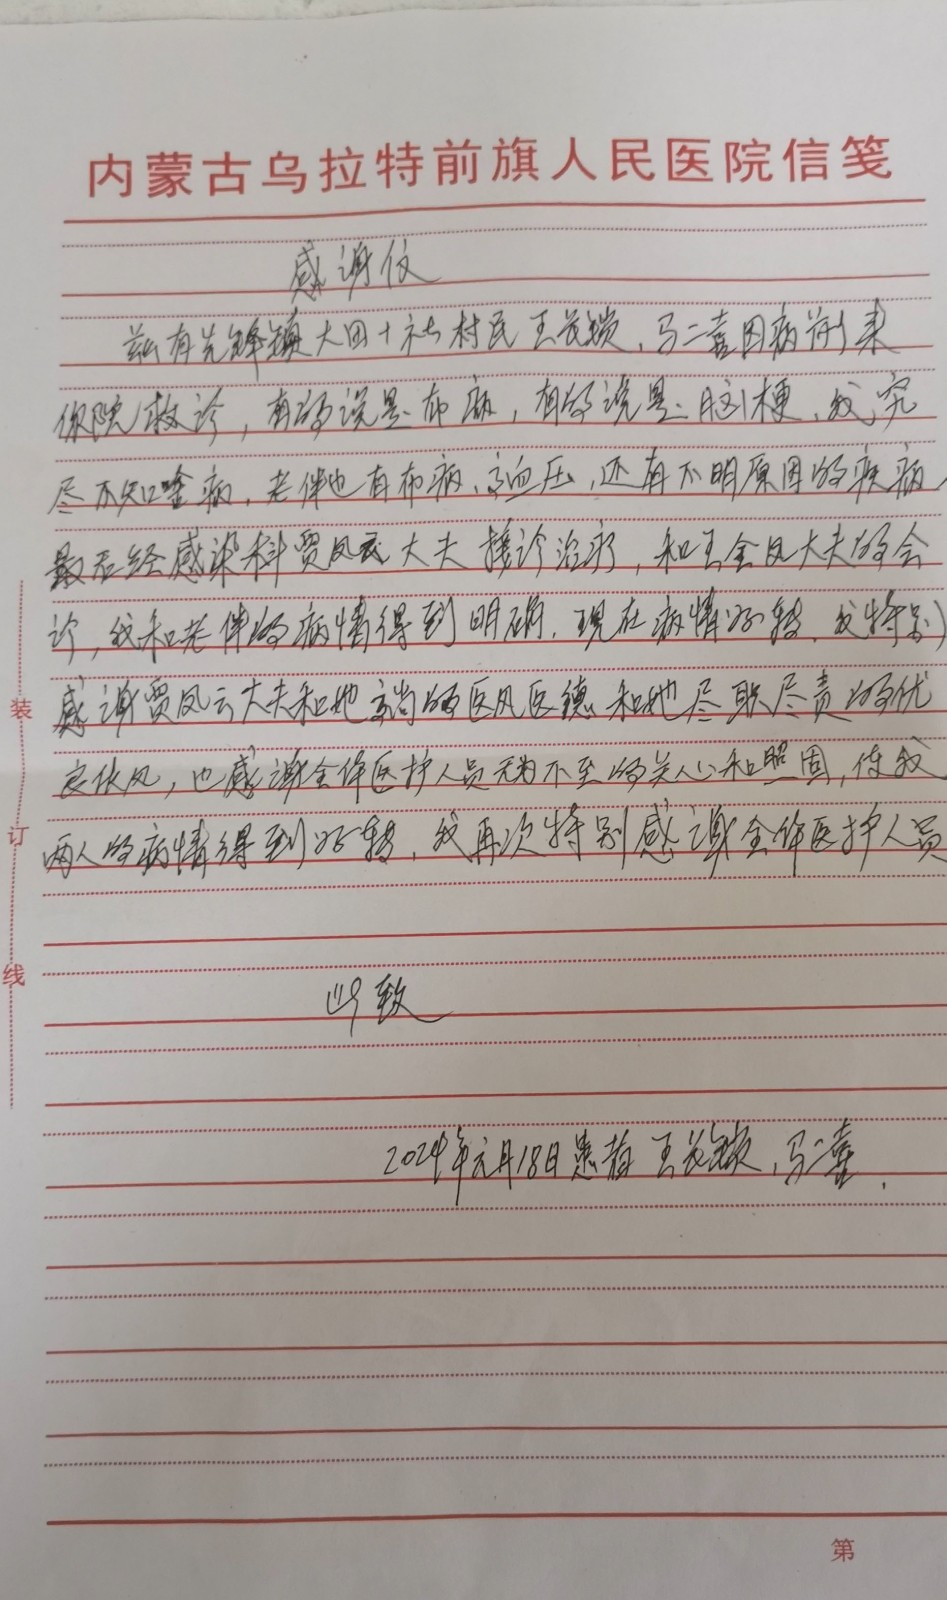 内蒙古乌拉特前旗人民医院信笺
感谢仪
兹有先锋镇大田十社村民王长锁、马二喜因病前来
你院救诊，有的说是布病，有的说是脑梗，我究
尽不知啥病，老伴也有布病、高血压，还有不明原因的疾病，
最后经感染科贾凤云大夫接诊治疗，和王金凤大夫的会
诊，我和老伴的病情得到明确，现在病情好转，我特别
感谢贾凤云大夫和她高尚的医风医德和她尽职尽责的优
良作风，也感谢全体医护人员无为不至的关心和照固，使我
两人的病情得到好转，我再次特别感谢全体医护人员
此致
2024年元月18日患者 王长锁、马二喜.
装
订
线
第